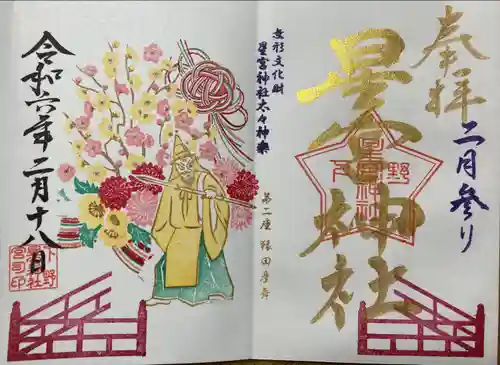 奉拝
二月参り
星宮神社
下野
星宮神社
無形文化財
星宮神社太々神楽
第二座 猿田彦舞
令和六年二月十八日